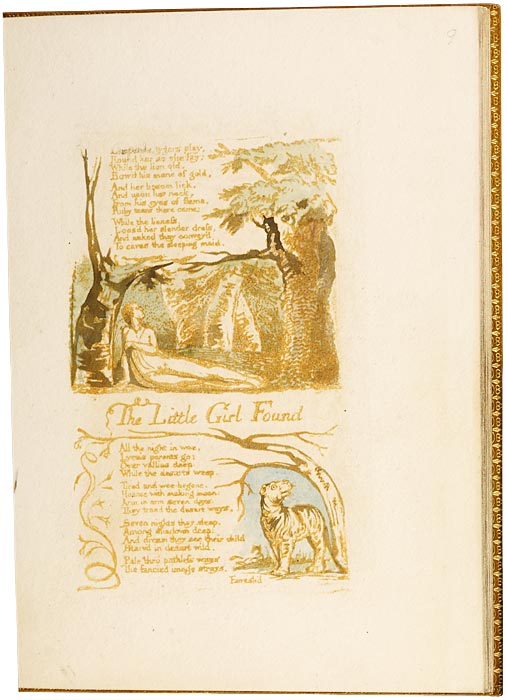 9
Leopards, tygers play,
Round her as she lay;
While the lion old,
Bow'd his mane of gold,
And her bosom lick,
And upon her neck,
From his eyes of flame,
Ruby tears there came;
While the lioness,
Loos'd her slender dress,
And naked they convey'd
To caves the sleeping maid.
The Little Girl Found
All the night in woe,
Lyca's parents go:
Over vallies deep,
While the desarts weep.
Tired and woe-begone,
Hoarse with making moan:
Arm in arm seven days,
They trac'd the desart ways.
Seven nights they sleep,
Among shadows deep:
And dream they see their child
Starv'd in desart wild.
Pale thro pathless ways
The fancied image strays,
Famish'd